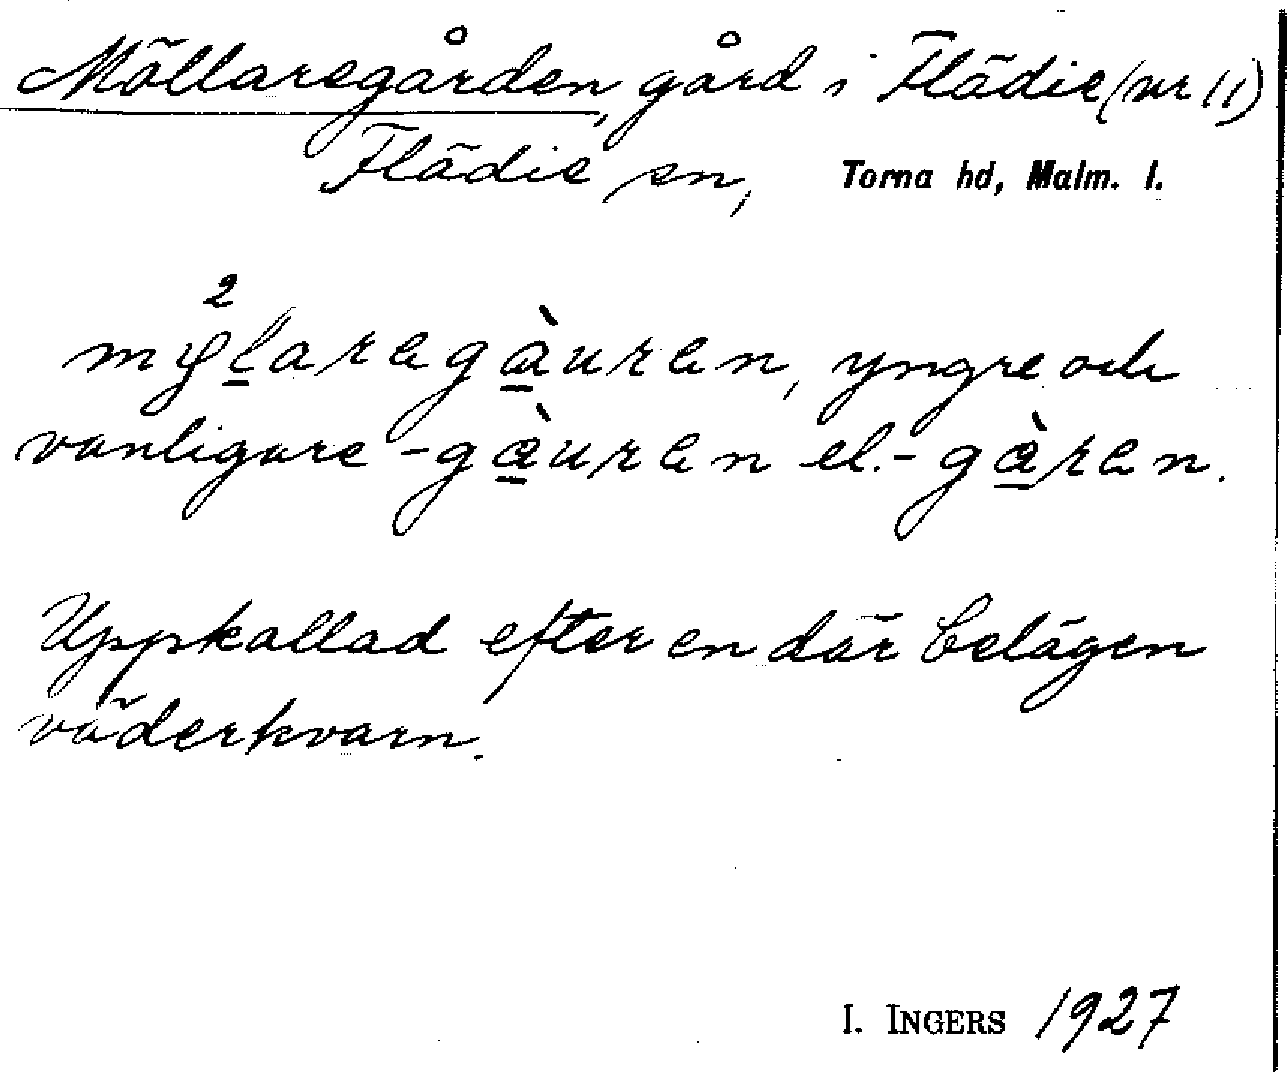 Möllaregården, gård i Flädie (nr 11)
Flädie sn, Torna hd, Malm. l.
²mφl̲aragà̲uran, yngre och
vanligare -gà̲uran el. -gà̲ran.
Uppkallad efter en där belägen
väderkvarn.
I. INGERS 1927